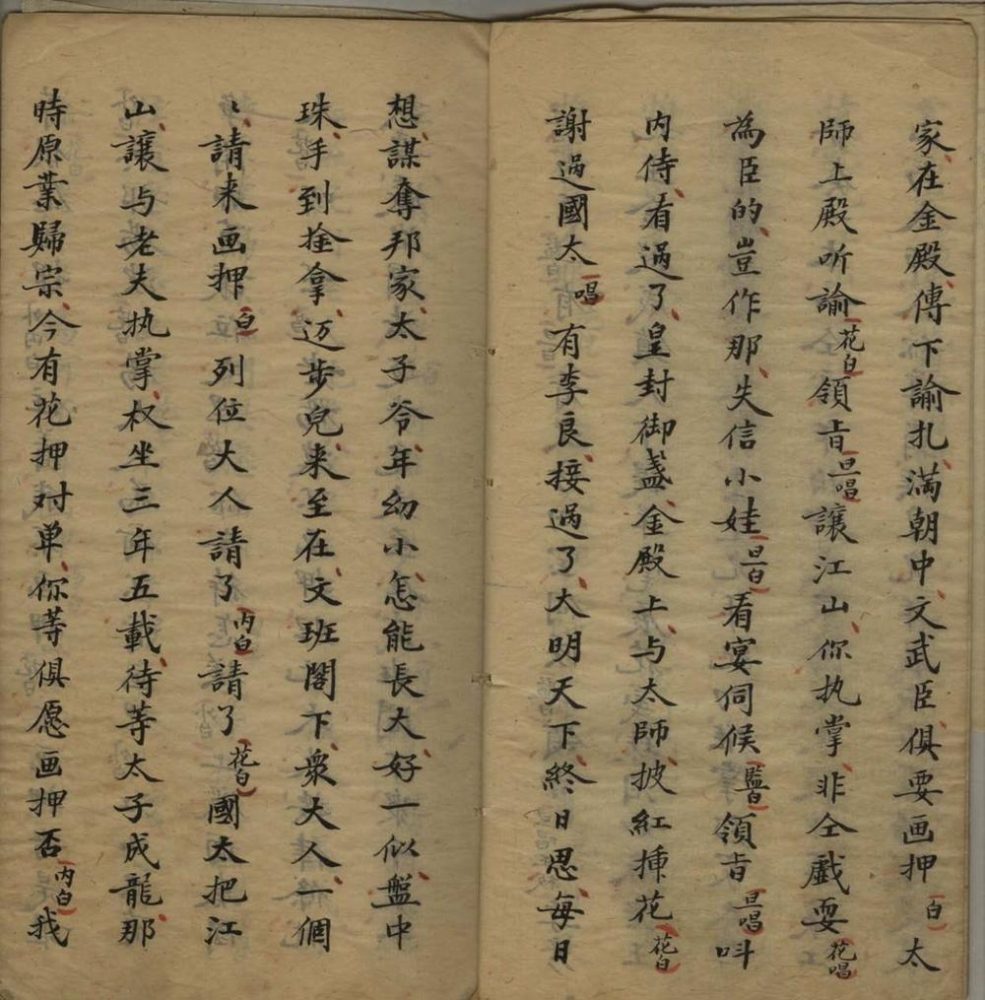 家在金殿傳下諭扎滿朝中文武臣俱要画押白太
師上殿听諭花白領㫖旦唱讓江山你执掌非仝戲耍花唱
為臣的豈作那失信小娃旦白看宴伺候監白領㫖旦唱呌
内侍看過了皇封御盞金殿上与太師披紅揷花花白
謝過國太唱有李良接過了大明天下終日思每日
想謀奪邦家太子爷年幼小怎能長大好一似盤中
珠手到拴拿迈步兒来至在文班閣下衆大人一個
〻請来画押白列位大人請了内白請了花白國太把江
山讓与老夫执掌权坐三年五載待等太子成龍那
時原業歸宗今有花押对单你等俱愿画押否内白我